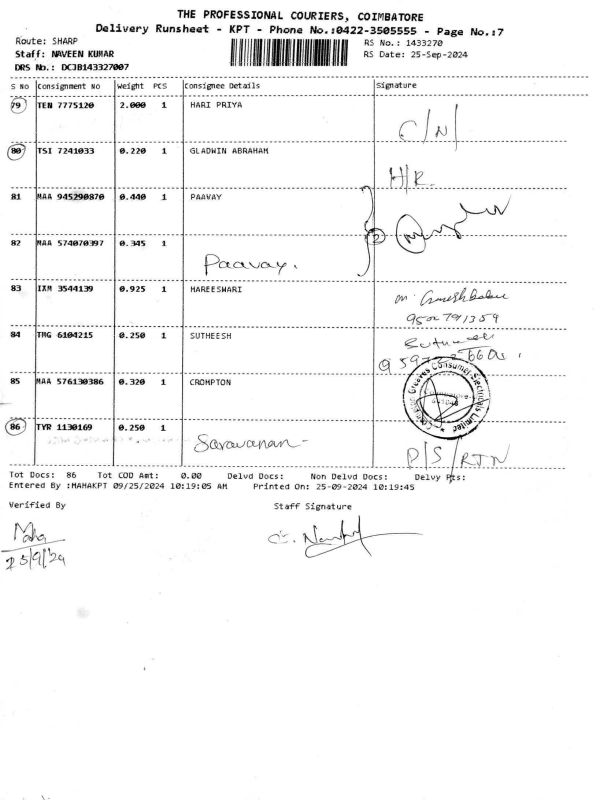 THE PROFESSIONAL COURIERS, COIMBATORE
Delivery Runsheet - KPT - Phone No.:0422-3505555 - Page No.:7
Route: SHARP
RS No.: 1433270
Staff: NAVEEN KUMAR
RS Date: 25-Sep-2024
DRS No.: DCJB143327007
S No Consignment No Weight PCS Consignee Details Signature
79 TEN 7775120 2.000 1 HARI PRIYA
C/N/
80 TSI 7241033 0.220 1 GLADWIN ABRAHAM
H/R
81 MAA 945290870 0.440 1 PAAVAY
2
82 MAA 574070397 0.345 1
Paavay.
83 IXM 3544139 0.925 1 HAREESWARI
84 TMG 6104215 0.250 1 SUTHEESH
85 MAA 576130386 0.320 1 CROMPTON
Crompton Greaves Consumer Electricals Limited
86 TYR 1130169 0.250 1
Saravanan
P/S/RTN
Tot Docs: 86 Tot COD Amt: 0.00 Delvd Docs: Non Delvd Docs: Delvy Pts:
Entered By :MAHAKPT 09/25/2024 10:19:05 AM Printed On: 25-09-2024 10:19:45
Verified By Staff Signature
Maha
25/9/24